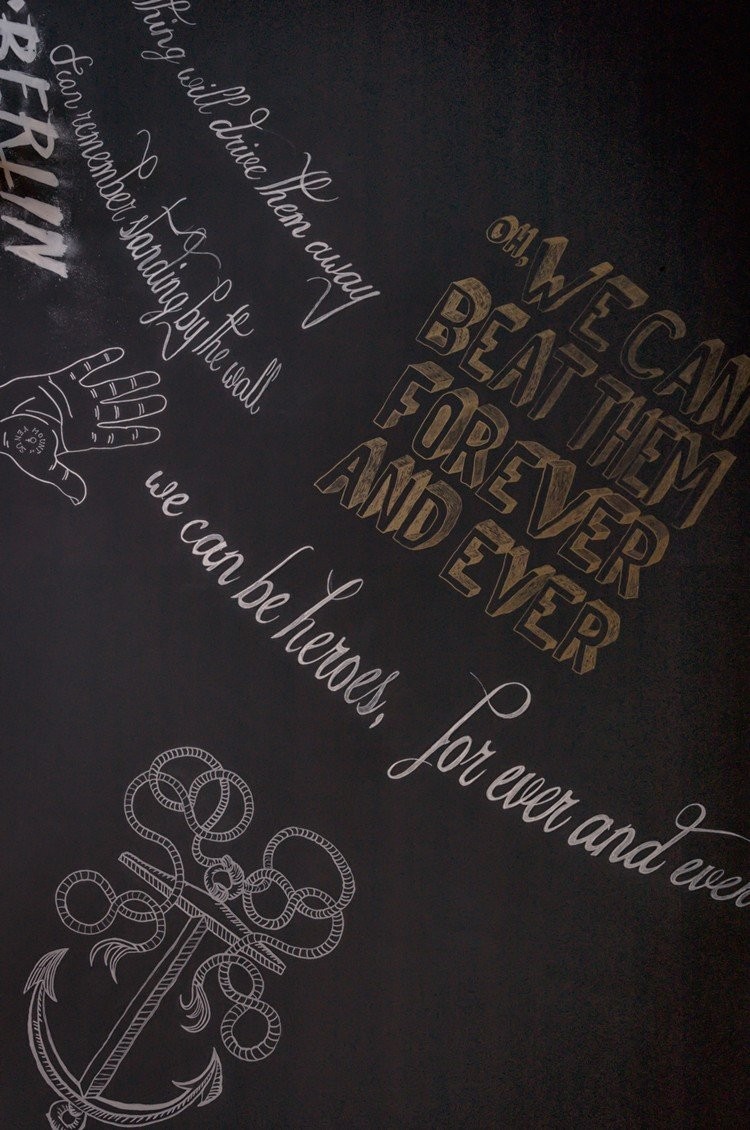 BERLIN
thing will drive them away
I can remember standing by the wall
OH, WE CAN
BEAT THEM
FOREVER
AND EVER
we can be heroes,
for ever and ever